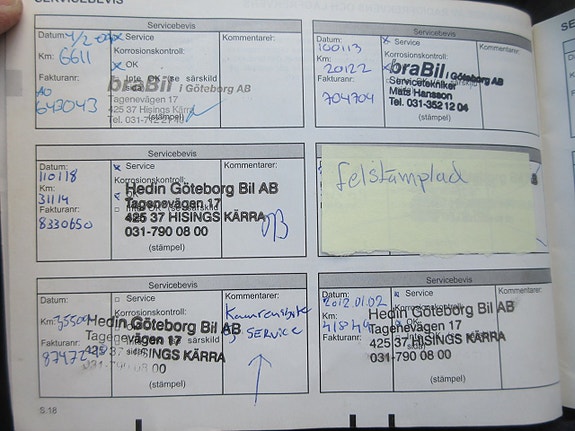 SERVICEBEVIS
Servicebevis
Datum:
Service
Kommentarer:
Km: 6611
Korrosionskontroll:
OK
Fakturanr:
Inte OK (se särskild
sida)
AO
643043
braBil i Göteborg AB
Tagenevägen 17
425 37 Hisings Kärra
(stämpel)
Servicebevis
Datum:
Service
Kommentarer:
100113
Korrosionskontroll:
Km:
20122
Fakturanr:
704704
braBil i Göteborg AB
Servicetekniker
Mats Hansson
Tel. 031-352 12 04
(stämpel)
Servicebevis
Datum:
Service
Kommentarer:
110118
Korrosionskontroll:
Km:
OK
31114
Inte OK (se särskild
Fakturanr:
8330650
Hedin Göteborg Bil AB
Tagenevägen 17
425 37 HISINGS KÄRRA
031-790 08 00
(stämpel)
felstämplad
Servicebevis
Datum:
Service
Kommentarer:
Korrosionskontroll:
Km:
OK
Fakturanr:
särskild
sida)
Hedin Göteborg Bil AB
Tagenevägen 17
425 37 HISINGS KÄRRA
031-790 08 00
SERVICE
(stämpel)
Servicebevis
Datum:
Service
Kommentarer:
2012.01.02
Korrosionskontroll:
Km:
OK
Fakturanr:
särskild
sida)
Hedin Göteborg Bil AB
Tagenevägen 17
425 37 HISINGS KÄRRA
031-790 08 00
(stämpel)
S.18